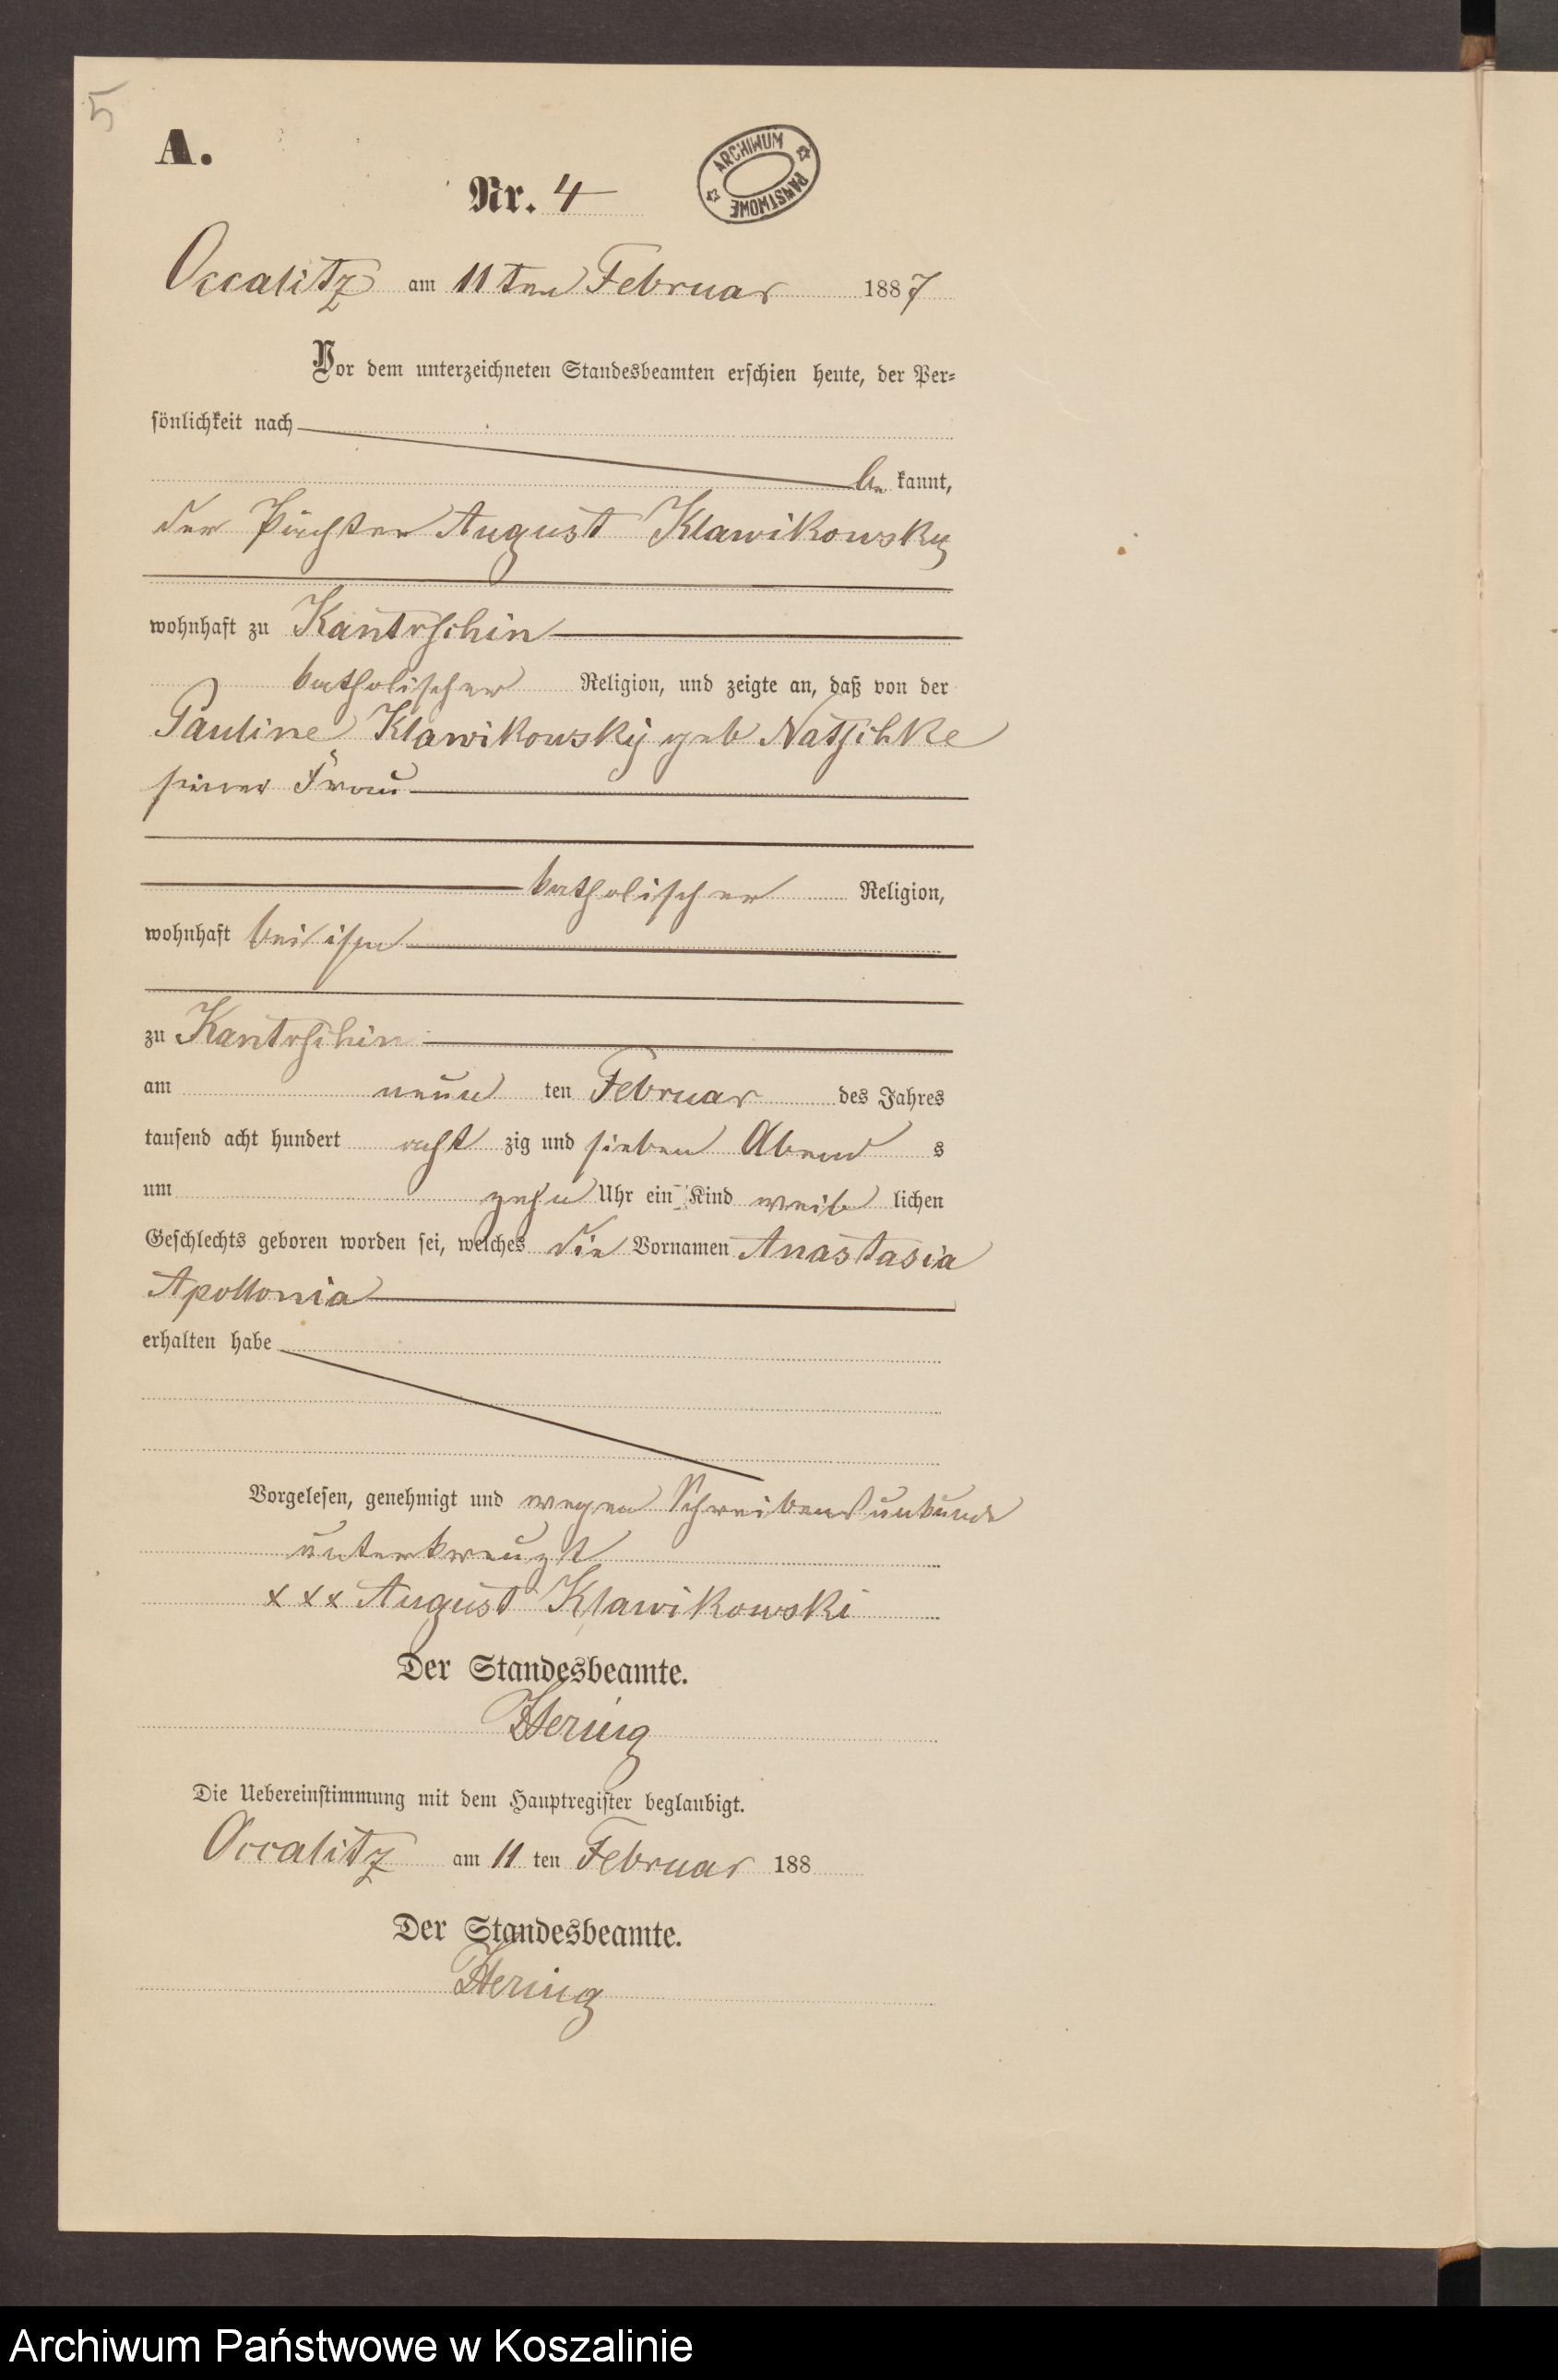 5
A.
Nr. 4
ARCHIWUM PAŃSTWOWE
Occalitz am 11ten Februar 1887
Vor dem unterzeichneten Standesbeamten erschien heute, der Per-
sönlichkeit nach
be kannt,
der Pächter August Klawikowsky
wohnhaft zu Kantrschin
katholischer Religion, und zeigte an, daß von der
Pauline Klawikowsky geb Natschke
seiner Frau
katholischer Religion,
wohnhaft bei ihm
zu Kantrschin
am neun ten Februar des Jahres
tausend acht hundert acht zig und sieben Abend s
um zehn Uhr ein Kind weib lichen
Geschlechts geboren worden sei, welches die Vornamen Anastasia
Apollonia
erhalten habe
Vorgelesen, genehmigt und wegen Schreibensunkunde
unterkreuzt
xxx August Klawikowski
Der Standesbeamte.
Hering
Die Uebereinstimmung mit dem Hauptregister beglaubigt.
Occalitz am 11 ten Februar 188
Der Standesbeamte.
Hering
Archiwum Państwowe w Koszalinie